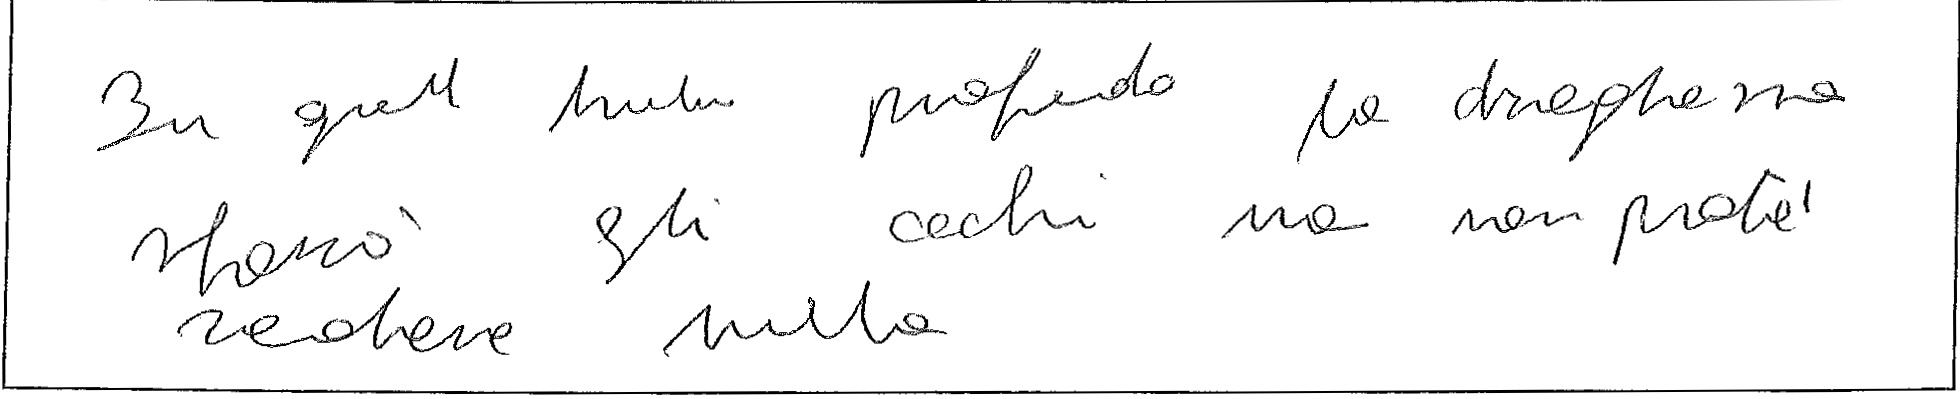 In quell buio profondo la draghessa
sforzò gli occhi ma non poté
vedere nulla